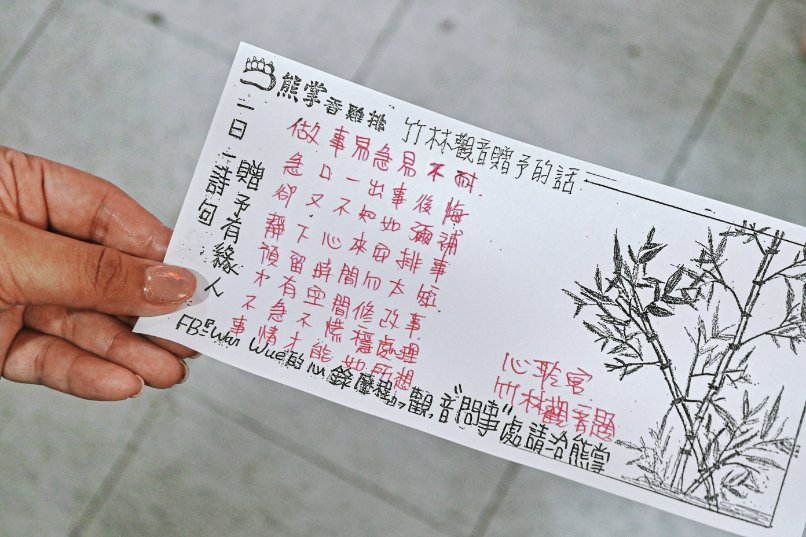 熊掌香雞排
竹林觀音贈予的話
一日一詩句
贈予有緣人
做事易急易不耐
急口一出事後悔
卻又不知如彌補
靜下心來安排事
預留時間向大
才有空間修改事
不急不慌穩處理
事情才能如所想
心聆宮
竹林觀音題
FB Wan Wu 的
觀音"問事"處請洽熊掌